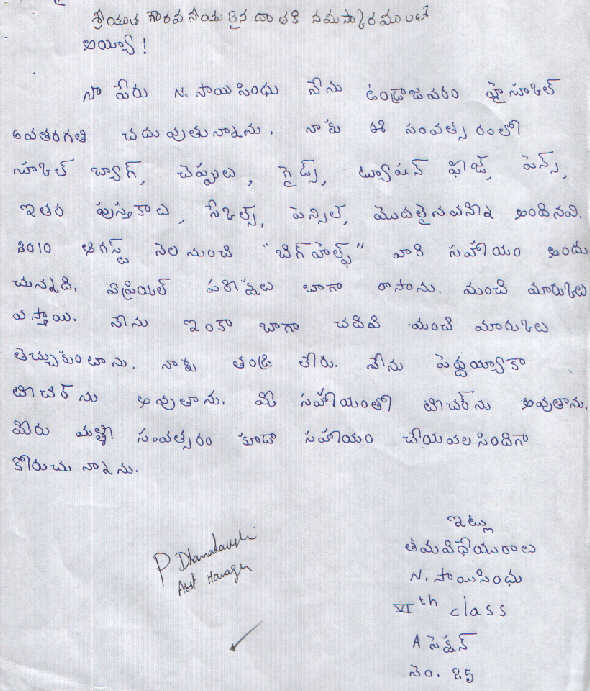 శ్రీయుత గౌరవ నీయులైన దాతకి నమస్కారములతో
అయ్యా !
నా పేరు N. సాయిసింధు నేను ఉండ్రాజవరం హైస్కూల్
6వతరగతి చదువుతున్నాను. నాకు ఈ సంవత్సరంలో
స్కూల్ బ్యాగ్, చెప్పులు, గైడ్స్, ట్యూషన్ ఫీజ్, పెన్స్,
ఇతర పుస్తకాలు, స్కేల్స్, పెన్సిల్స్, మొదలైనవన్ని అందినవి.
2010 ఆగస్ట్ నెల నుంచి "బిగ్ హెల్ప్" వారి సహాయం అందు
చున్నది. పరీక్షలు బాగా రాసాను. మంచి మార్కులు
వస్తాయి. నేను ఇంకా బాగా చదివి మంచి మార్కులు
తెచ్చుకుంటాను. నాకు తండ్రి లేరు. నేను పెద్దయ్యాకా
టీచర్ ను అవుతాను. మీ సహాయంతో టీచర్ ను అవుతాను.
మీరు మళ్లీ సంవత్సరం కూడా సహాయం చేయవలసిందిగా
కోరుచు నాన్నను.
ఇట్లు
తమవిధేయురాలు
N. సాయిసింధు
VIth class
A సెక్షన్
నెం. 25
P Dhanalakshmi
Asst Manager